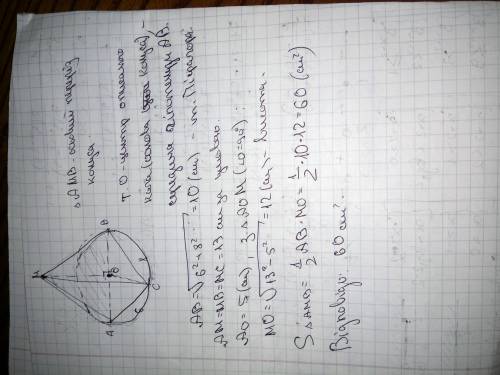 M
A
O
B
6
8
C
△AMB - осьовий переріз
конуса
т. О - центр описаного
кола (основа конуса) -
середина гіпотенузи АВ.
AB = √6² + 8² = 10 (см) - т. Піфагора.
AM = MB = MC = 13 см за умовою.
AO = 5 (см), з △AOM (∠O = 90°):
MO = √13² - 5² = 12 (см) - висота.
S△AMB = 1/2 AB · MO = 1/2 · 10 · 12 = 60 (см²)
Відповідь: 60 см².